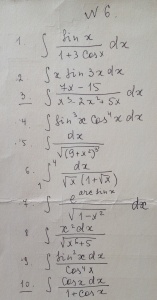 № 6.
1. ∫ sin x / (1 + 3 cos x) dx
2. ∫ x sin 3x dx
3. ∫ (7x - 15) / (x³ - 2x² + 5x) dx
4. ∫ sin³ x cos⁴ x dx
5. ∫ dx / √(9 + x²)³
6. ₁∫⁴ dx / (√x (1 + √x))
7. ∫ e^(arc sin x) / √(1 - x²) dx
8 ∫ x² dx / √(x² + 5)
9. ∫ sin² x dx / cos⁴ x
10. ∫ cos x dx / (1 + cos x)